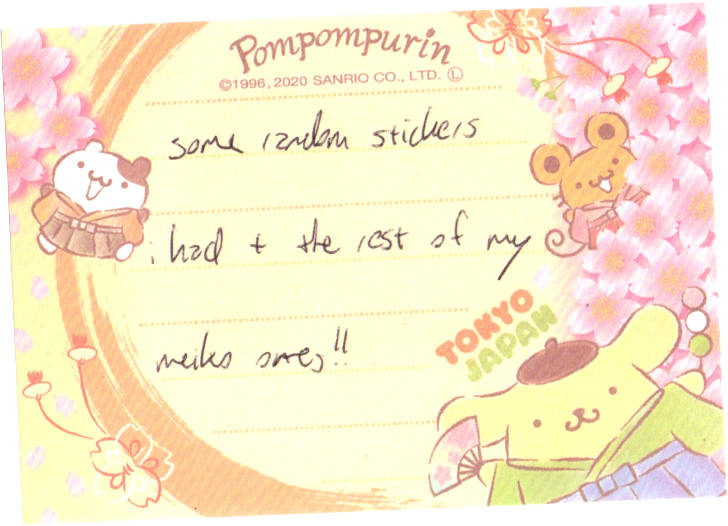 Pompompurin
©1996, 2020 SANRIO CO., LTD. Ⓛ
some random stickers
i had + the rest of my
meiko ones!!
TOKYO
JAPAN